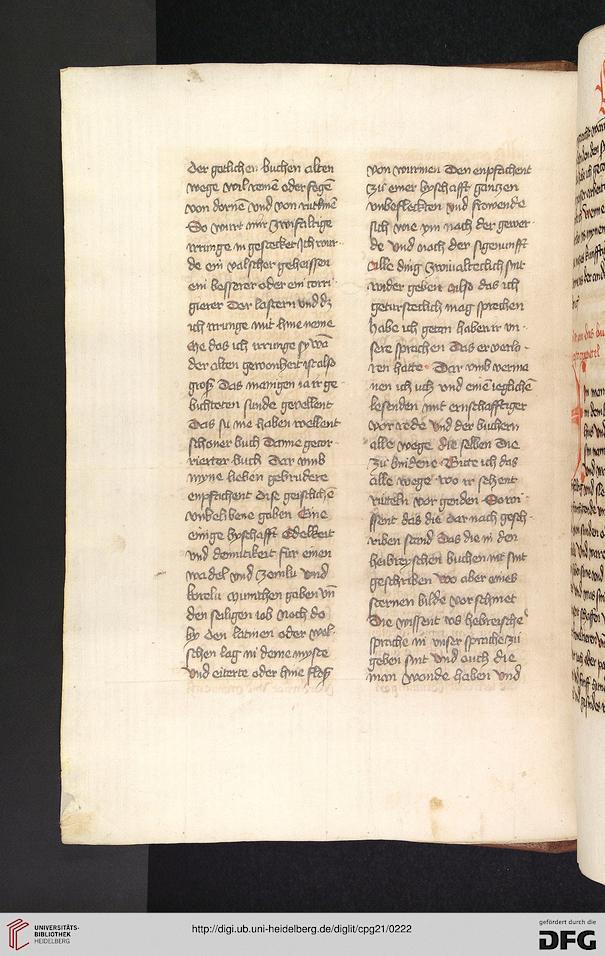 der gotlichen buchen alten
wege wil rumē oder fegē
von dornē vnd von rutlinē
So wurt mir zwifaltige
irrunge in gestecket Ich wur
de ein valscher geheissen
ein besserer oder ein corri
gierer der lastern vnd dz
ich irrunge mit hine neme
Me das ich irrunge sy wā
der alten gewonheit ist also
groß Das manigen ia ir ge
buchteten sunde gevellent
Das su me haben wellent
schoner buch Danne getor
rierter buch Dar vmb
myne lieben gebrudere
enpfachent dise geistlichē
vnbelibene gaben Eine
einige byschafft Edelkeit
vnd demutikeit fur einen
wadel vnd zemlu vnd
korelu munchen gaben vn̄
den seiligen iob noch do
by den latinen oder wal
schen lag in deme myste
vnd eiterte oder hine floß
von wurmen Den enpfachent
zu einer byschafft gantzen
vnbefleckten vnd frowende
sich wie ym nach der gewer
de vnd noch der sigenunfft
Alle ding zwiualteclich sint
wider geben Also das ich
getursteclich mag sprechen
habe ich geton haben ir vn
sere sprachen Das er verlo
ren hatte Dar vmb verma
nen ich uch vnd einē ieglichē
lesenden mit ernschafftiger
vor rede vnd der buchern
alle wege die selben die
zu bindene Bitte ich das
alle wege wo ir sehent
rutteln vor genden So wi
ssent das die dar nach gesch
riben stand Das die in den
hebreyschen buchen nit sint
geschriben wo aber eines
sternen bilde vor schinet
Die wissent vs hebreische
sprache in vnser sprache zu
geben sint vnd ouch die
man wonde haben vnd
UNIVERSITÄTS-
BIBLIOTHEK
HEIDELBERG
http://digi.ub.uni-heidelberg.de/diglit/cpg21/0222
gefördert durch die
DFG